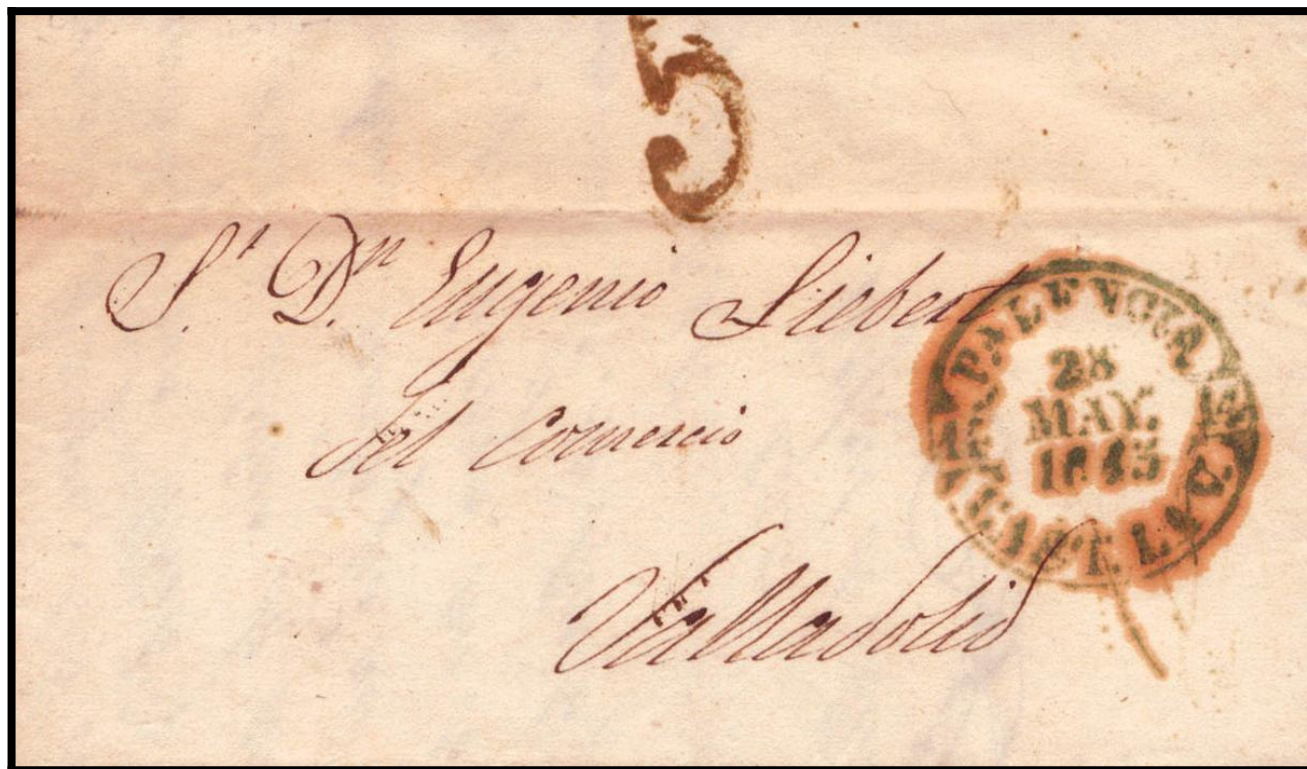 5
Sr. Dn. Eugenio Liebert
del comercio
Valladolid
PALENCIA
MAY.
CAST. LA V.